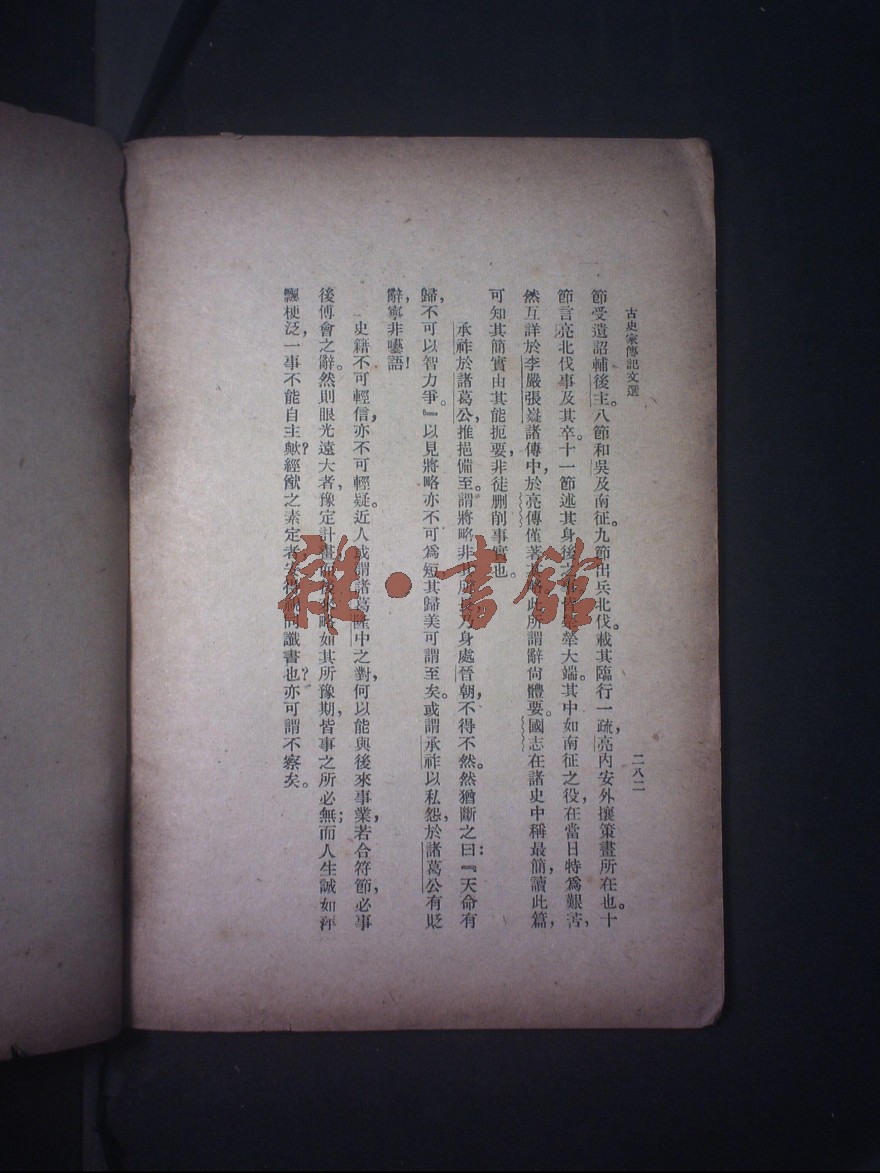 古史家傳記文選
二八二
節受遺詔輔後主。八節和吳及南征。九節出兵北伐。載其臨行一疏，亮內安外攘策畫所在也。十
節言亮北伐事及其卒。十一節述其身後之 犖犖大端。其中如南征之役，在當日特爲艱苦，
然互詳於李嚴張嶷諸傳中，於亮傳僅著其略，此所謂辭尙體要。國志在諸史中稱最簡，讀此篇，
可知其簡實由其能扼要，非徒删削事實也。
承祚於諸葛公，推挹備至。謂將略非其所長，乃身處晉朝，不得不然。然猶斷之曰：『天命有
歸，不可以智力爭。』以見將略亦不可爲短，其歸美可謂至矣。或謂承祚以私怨，於諸葛公有貶
辭，寧非囈語！
史籍不可輕信，亦不可輕疑。近人或謂諸葛隆中之對，何以能與後來事業，若合符節，必事
後傅會之辭。然則眼光遠大者，豫定計畫，而後來略如其所豫期，皆事之所必無；而人生誠如萍
飄梗泛，一事不能自主歟？經猷之素定者， 讖書也？亦可謂不察矣。
雜·書館